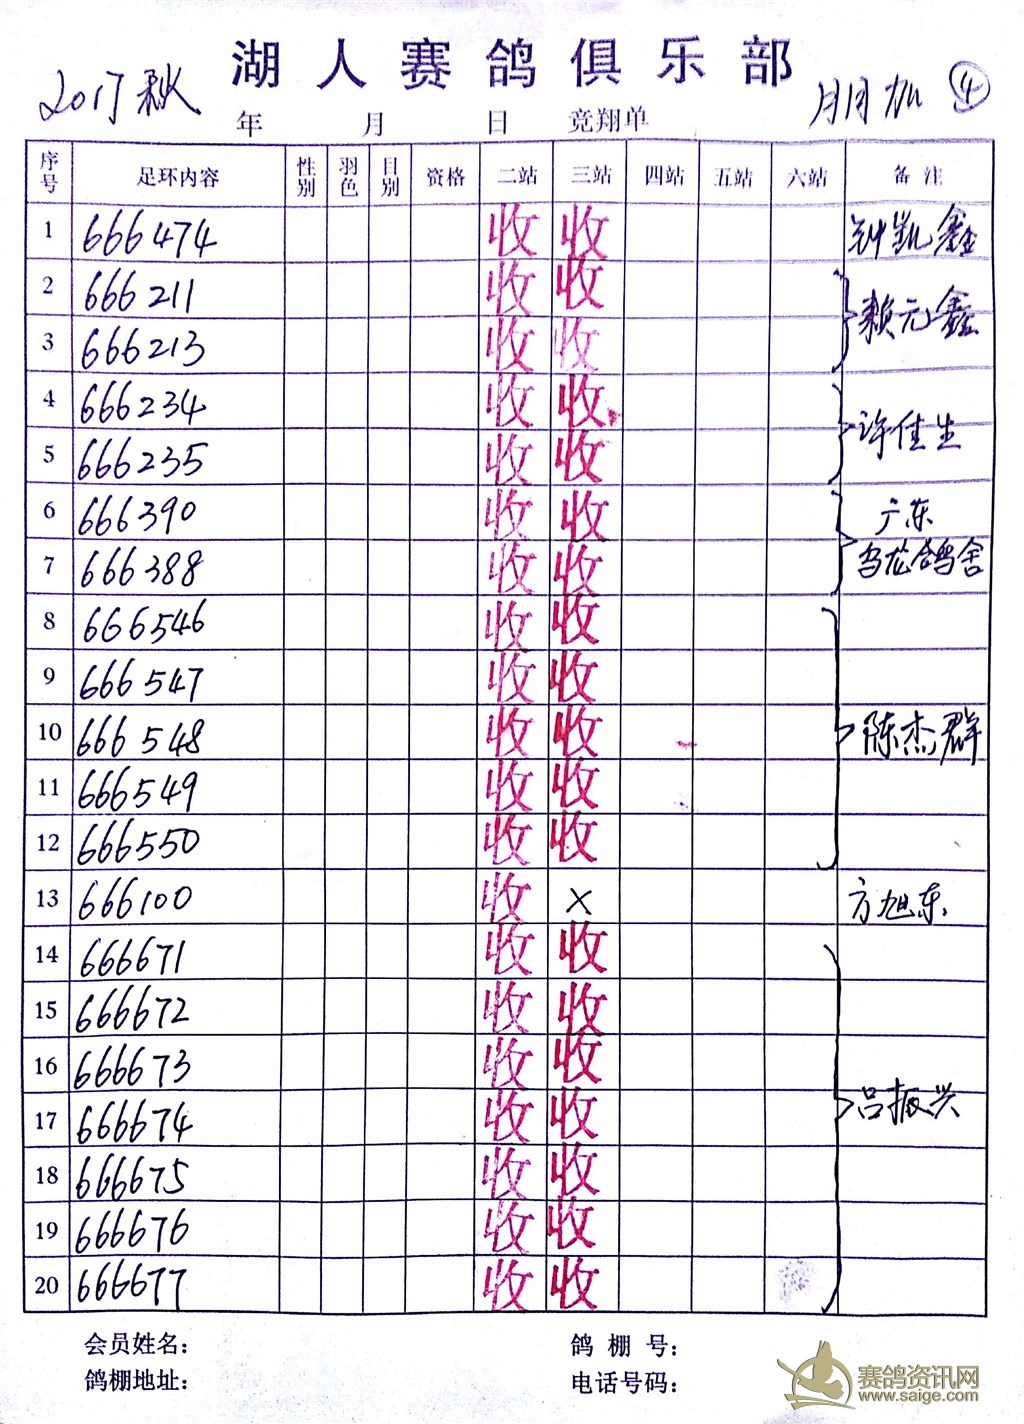 湖人赛鸽俱乐部
2017秋 年 月 日 竞翔单 月月加 ④
序号 足环内容 性别 羽色 目别 资格 二站 三站 四站 五站 六站 备注
1 666474 收 收 钟凯鑫
2 666211 收 收
赖元鑫
3 666213 收 收
4 666234 收 收
许佳生
5 666235 收 收
6 666390 收 收 广东
7 666388 收 收 乌龙鸽舍
8 666546 收 收
9 666547 收 收
10 666548 收 收 陈杰群
11 666549 收 收
12 666550 收 收
13 666100 收 × 方旭东
14 666671 收 收
15 666672 收 收
16 666673 收 收
17 666674 收 收 吕振兴
18 666675 收 收
19 666676 收 收
20 666677 收 收
会员姓名： 鸽棚号：
鸽棚地址： 电话号码：
赛鸽资讯网
www.saige.com